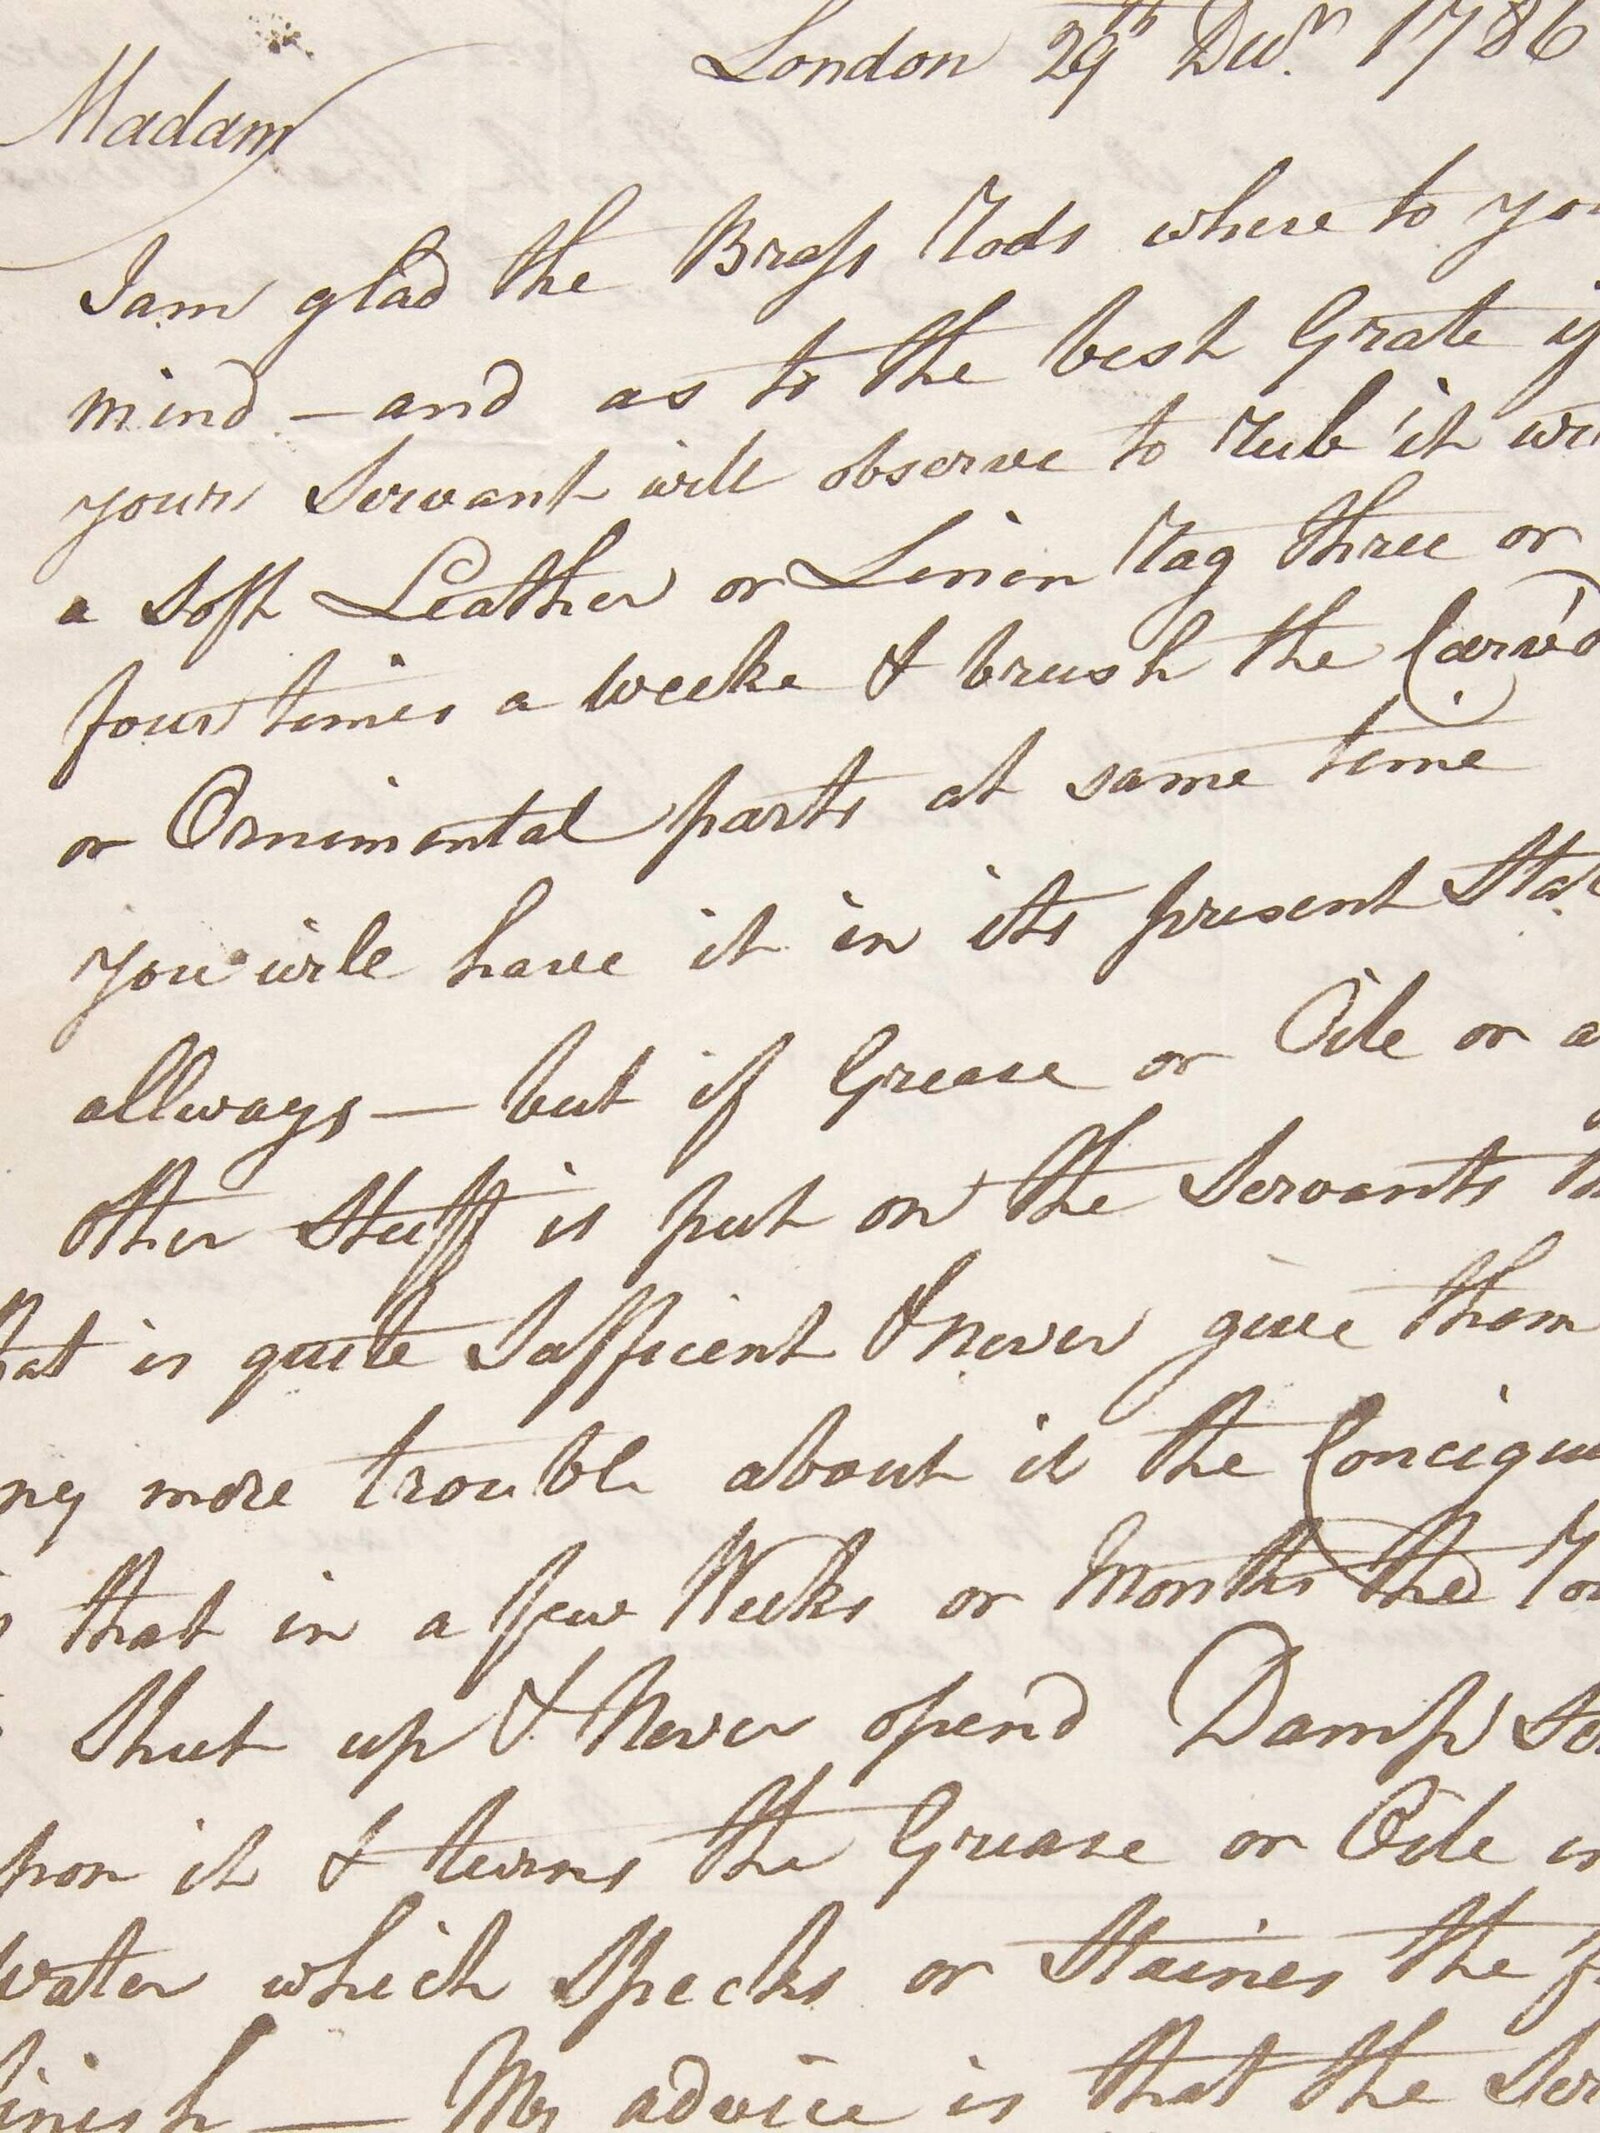 London 29th Decr. 1786
Madam
I am glad the Brass Rods where to your
mind — and as to the best Grate if
your Servant will observe to rub it with
a Soft Leather or Linen Rag three or
four times a Weeke & brush the Carv'd
or Ornimental parts at same time
you will have it in its present State
allways — but if Grease or Oile or a
other Stuff is put on the Servants th
that is quite Sufficent & never give them
ny more trouble about it the Concique
that in a few Weeks or Months the Ro
Shut up & Never opend Damp Se
pon it & turns the Grease or Oile in
Water which Specks or Staines the f
finish — My advice is that the Ser